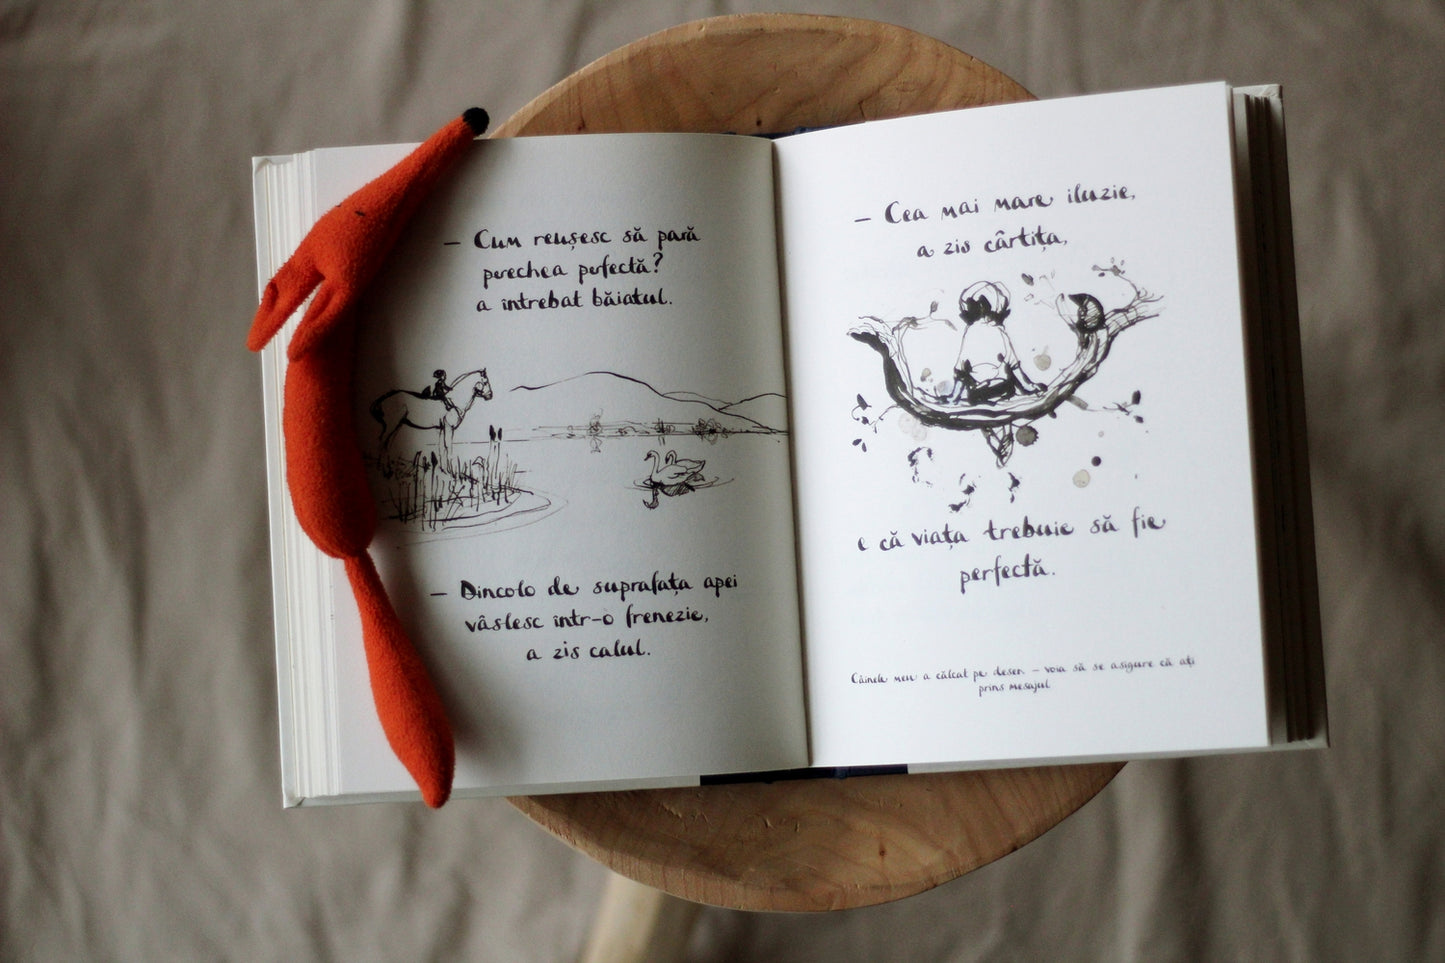 — Cum reușesc să pară
perechea perfectă?
a întrebat băiatul.
— Dincolo de suprafața apei
vâslesc într-o frenezie,
a zis calul.
— Cea mai mare iluzie,
a zis cârtița,
e că viața trebuie să fie
perfectă.
Câinele meu a călcat pe desen – voia să se asigure că ați
prins mesajul